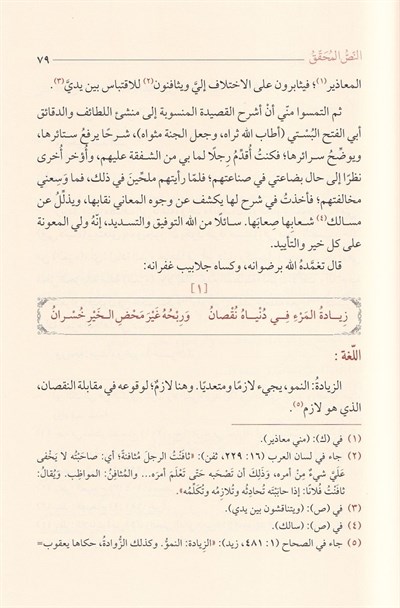 النص المحقق ٧٩
المعاذير(١)؛ فيثابرون على الاختلاف إليَّ ويثافنون(٢) للاقتباس بين يديَّ(٣).
ثم التمسوا منّي أنْ أشرح القصيدة المنسوبة إلى منشئ اللطائف والدقائق
أبي الفتح البُستي (أطاب الله ثراه، وجعل الجنة مثواه)، شرحًا يرفعُ ستائرها،
ويوضِّحُ سرائرها؛ فكنتُ أُقدِّمُ رِجلًا لما بي من الشفقة عليهم، وأُؤخر أُخرى
نظرًا إلى حال بضاعتي في صناعتهم؛ فلمّا رأيتهم ملحّينَ في ذلك، فما وَسِعني
مخالفتهم؛ فأخذتُ في شرح لها يكشف عن وجوه المعاني نقابها، ويذلِّلُ عن
مسالك(٤) شعابها صِعابَها. سائلًا من الله التوفيق والتسديد، إنّهُ ولي المعونة
على كل خير والتأييد.
قال تغمَّدهُ الله برضوانه، وكساه جلابيب غفرانه:
[١]
زِيادةُ المَرْءِ فِـي دُنْيـاهُ نُقْصانُ وَرِبْحُهُ غَيْرَ مَحْضِ الـخَيْرِ خُسْرانُ
اللّغة :
الزيادةُ: النمو، يجيء لازمًا ومتعديًا. وهنا لازمٌ؛ لوقوعه في مقابلة النقصان،
الذي هو لازم(٥).
(١) في (ك): (مني معاذير).
(٢) جاء في لسان العرب (١٦: ٢٢٩، ثفن): «ثافَنْتُ الرجلَ مُثافنةً؛ أي: صاحَبْتُه لا يَخْفى
عَلَيَّ شيءٌ مِنْ أمره، وَذَلِكَ أن تَصْحَبه حَتّى تَعْلَمَ أمرَه... والمُثافِنُ: المواظِب. وَيُقالُ:
ثافَنْتُ فُلانًا: إذا حابَبْتَه تُحادِثُه وتُلازِمُه وتُكَلِّمُه».
(٣) في (ص): (ويتناقشون بين يدي).
(٤) في (ص): (سالك).
(٥) جاء في الصحاح (١: ٤٨١، زيد): «الزِيادة: النموّ. وكذلك الزُوادةُ، حكاها يعقوب=